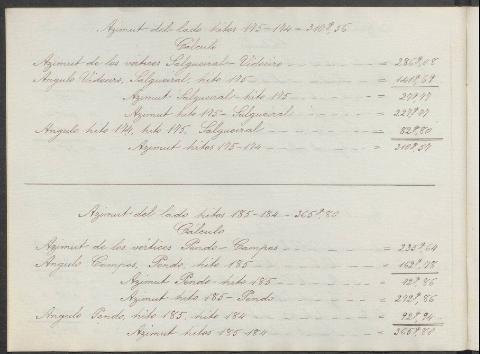 Azimut del lado hitos 175-174 = 310g,56
Cálculo
Azimut de los vértices Salgueiral-Vidoeiro = 286g,08
Angulo Vidoeiro, Salgueiral, hito 175 = 141g,69
Azimut Salgueiral-hito 175 = 27g,77
Azimut hito 175-Salgueiral = 227g,77
Angulo hito 174, hito 175, Salgueiral = 82g,80
Azimut hitos 175-174 = 310g,57
Azimut del lado hitos 185-184 = 365g,80
Cálculo
Azimut de los vértices Pindo-Campos
Angulo Campos, Pindo, hito 185
Azimut Pindo-hito 185 = 72g,86
Azimut hito 185-Pindo = 272g,86
Angulo Pindo, hito 185, hito 184 = 92g,94
Azimut hitos 185-184 = 365g,80